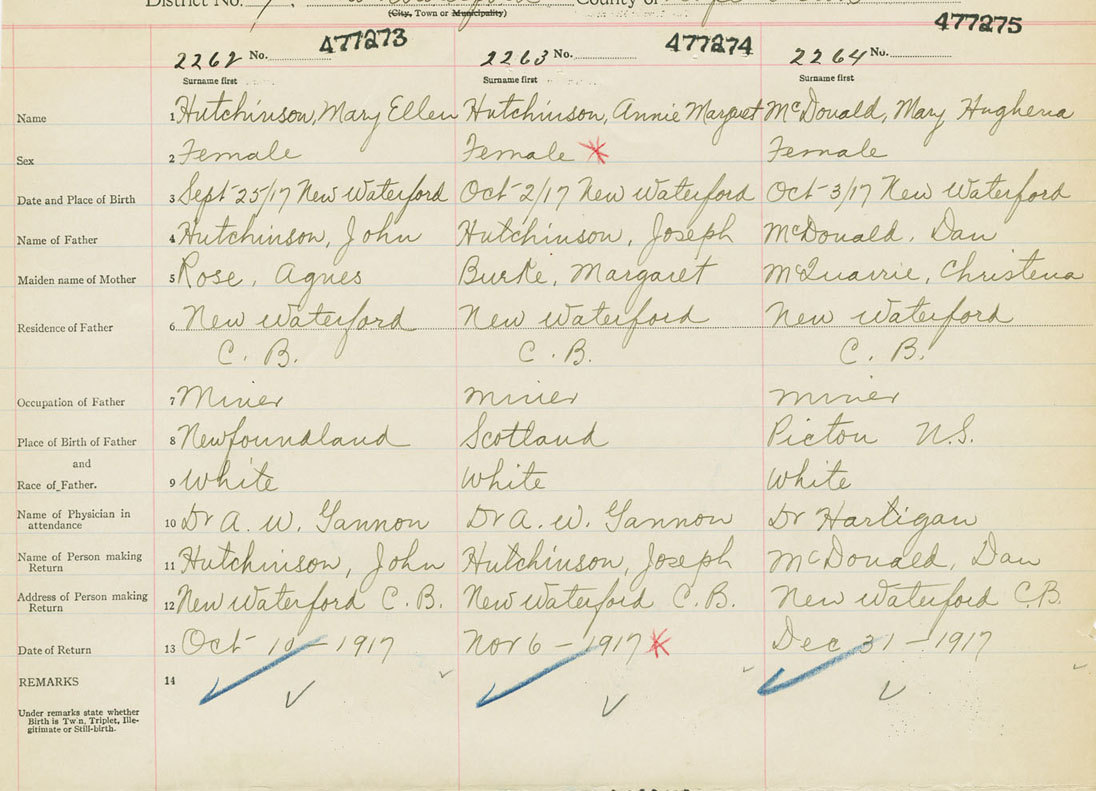 District No. County of
(City, Town or Municipality)
477273 477274 477275
2262 No. 2263 No. 2264 No.
Surname first Surname first Surname first
Name 1 Hutchinson, Mary Ellen Hutchinson, Annie Margaret McDonald, Mary Hughena
Sex 2 Female Female Female
Date and Place of Birth 3 Sept 25/17 New Waterford Oct 2/17 New Waterford Oct 3/17 New Waterford
Name of Father 4 Hutchinson, John Hutchinson, Joseph McDonald, Dan
Maiden name of Mother 5 Rose, Agnes Burke, Margaret McQuarrie, Christena
Residence of Father 6 New Waterford New Waterford New Waterford
C. B. C. B. C. B.
Occupation of Father 7 Miner miner miner
Place of Birth of Father 8 Newfoundland Scotland Pictou N.S.
and
Race of Father. 9 White White White
Name of Physician in
attendance 10 Dr A. W. Gannon Dr A. W. Gannon Dr Hartigan
Name of Person making
Return 11 Hutchinson, John Hutchinson, Joseph McDonald, Dan
Address of Person making
Return 12 New Waterford C. B. New Waterford C. B. New Waterford C.B.
Date of Return 13 Oct 10 - 1917 Nov 6 - 1917 Dec 31 - 1917
REMARKS 14
Under remarks state whether
Birth is Twin, Triplet, Ille-
gitimate or Still-birth.